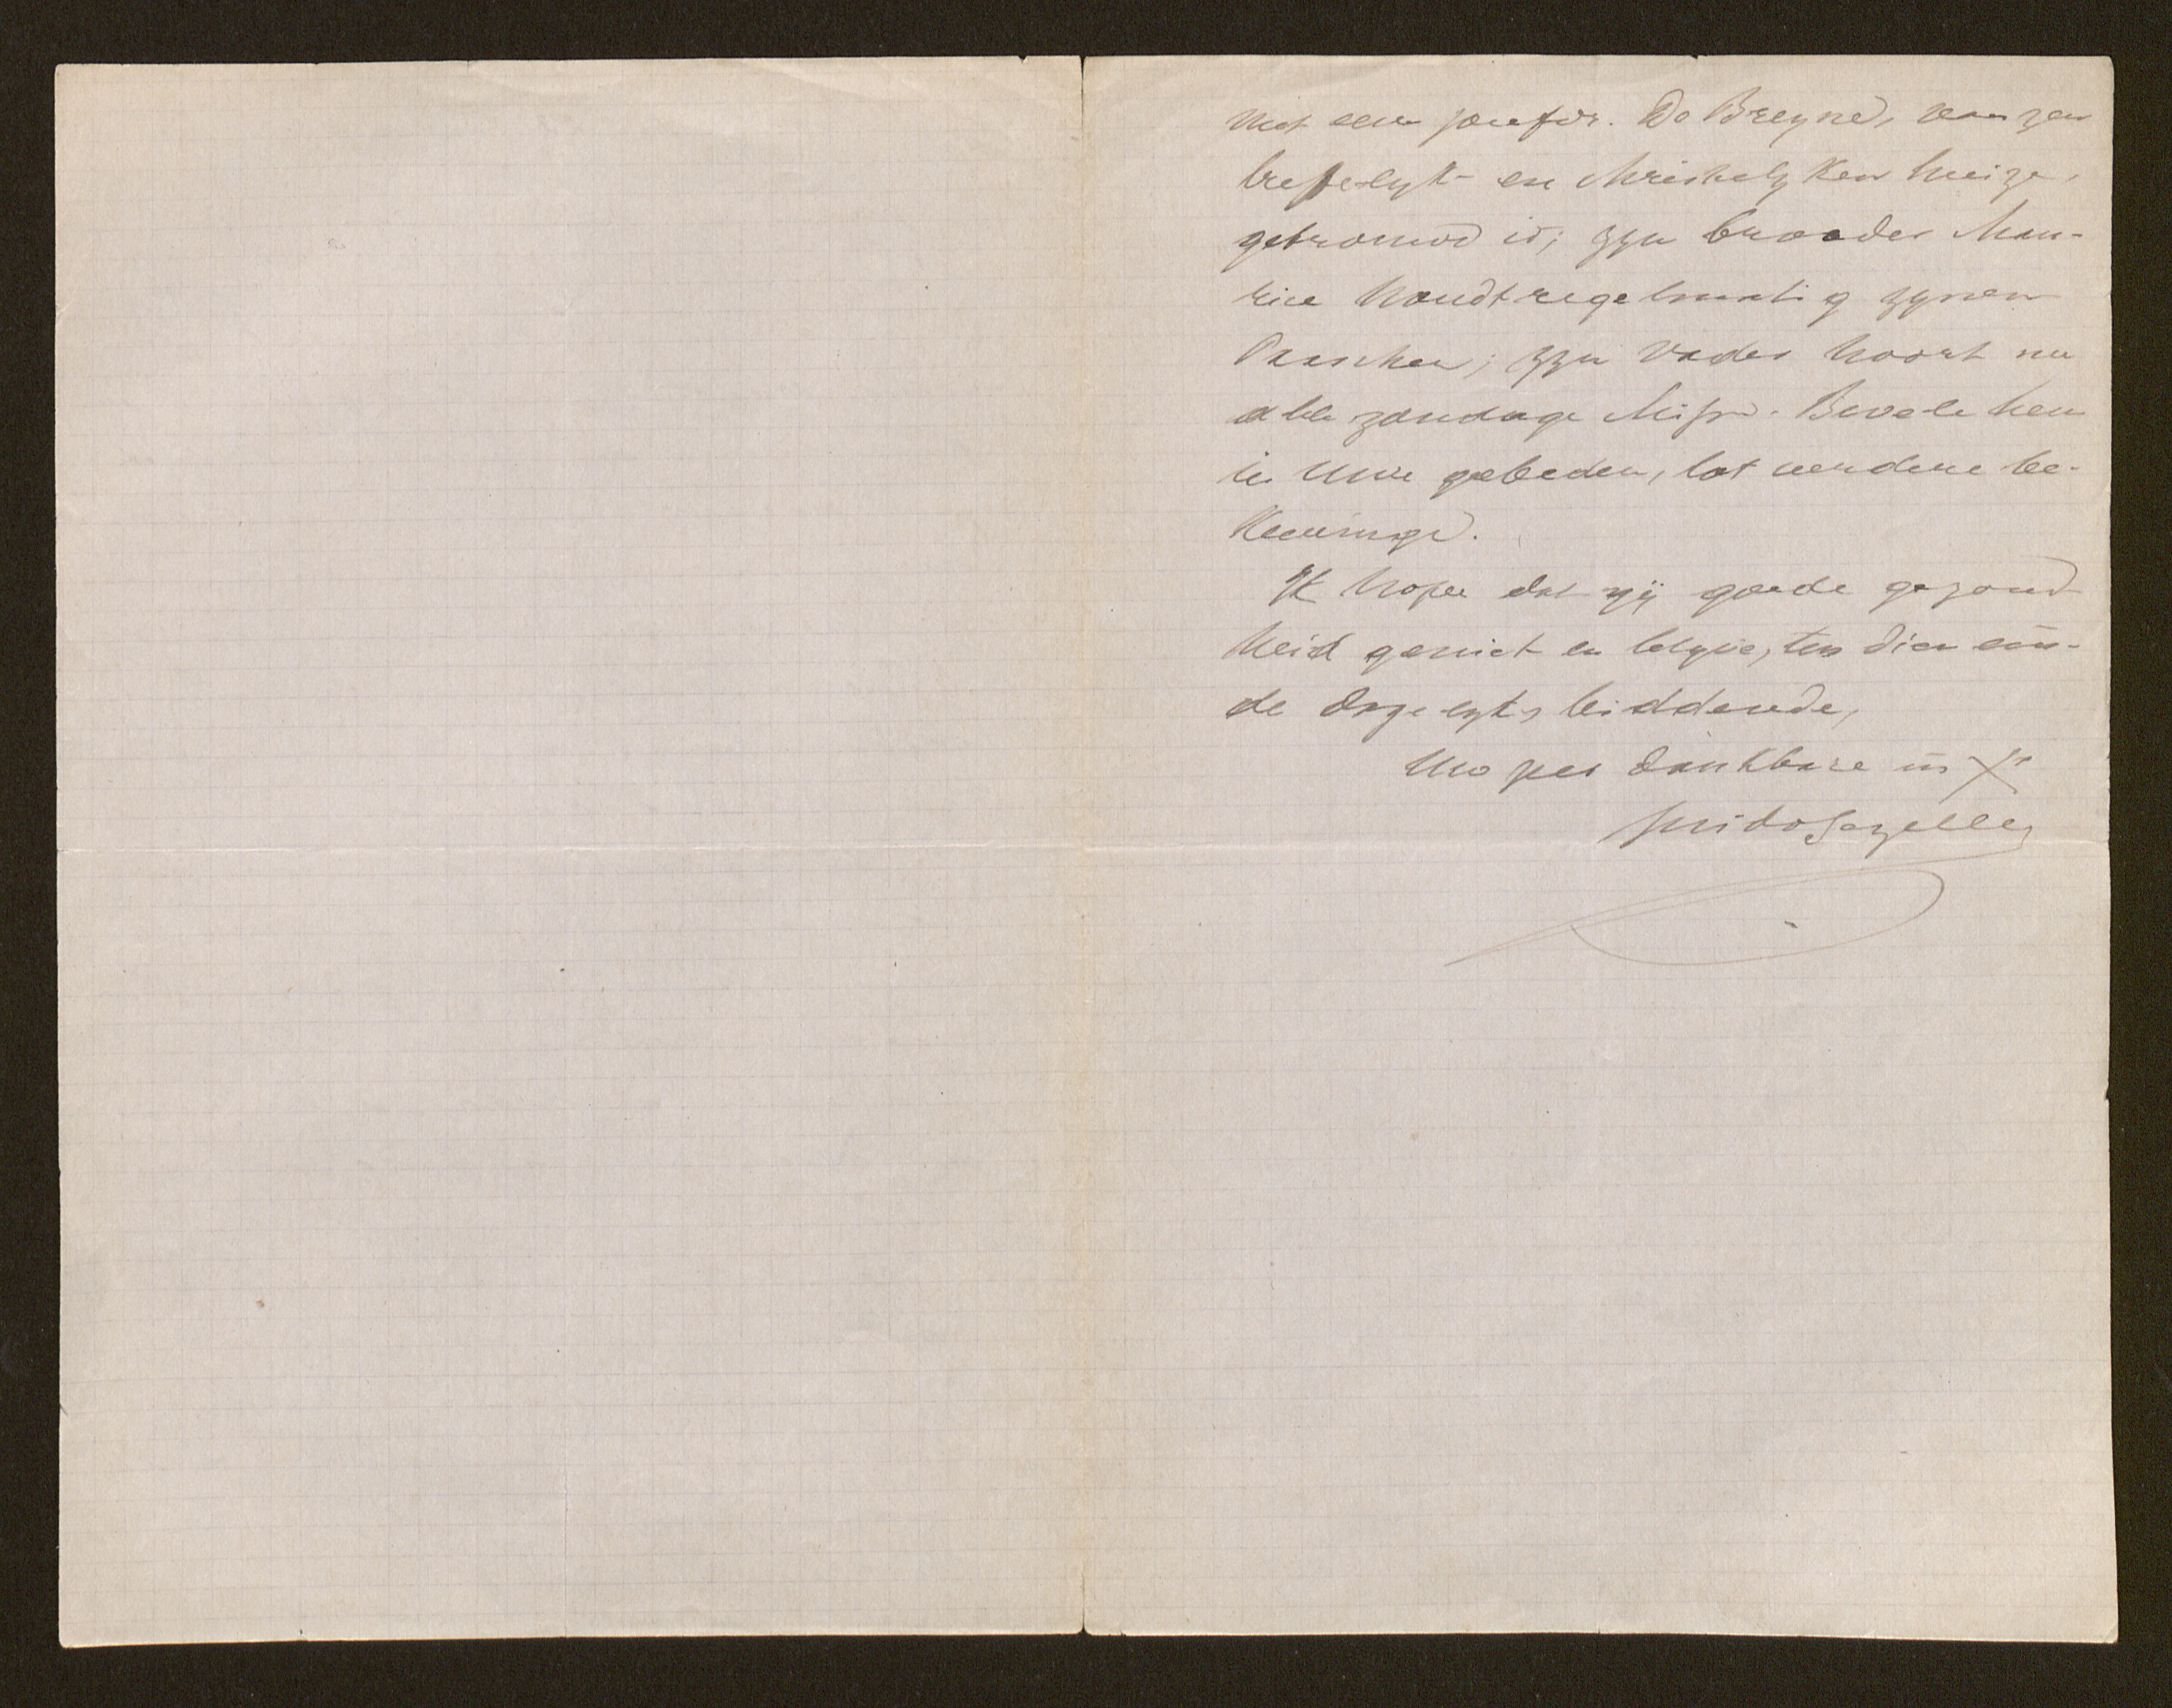 met eene joufvr. De Breyne, van zeer
treffelyk- en christelyken huize,
getrouwd is; zyn broeder Mau-
rice houdt regelmatig zynen
Paaschen; zyn vader hoort nu
alle zondage Misse. Bevele hen
in uwe gebeden, tot verdere be-
keeringe.
Ik hope dat gij goede gezond
heid geniet en blyve, ten dien ein-
de dagelyks biddende,
Uw zeer dankbare in X°
Guido Gezelle